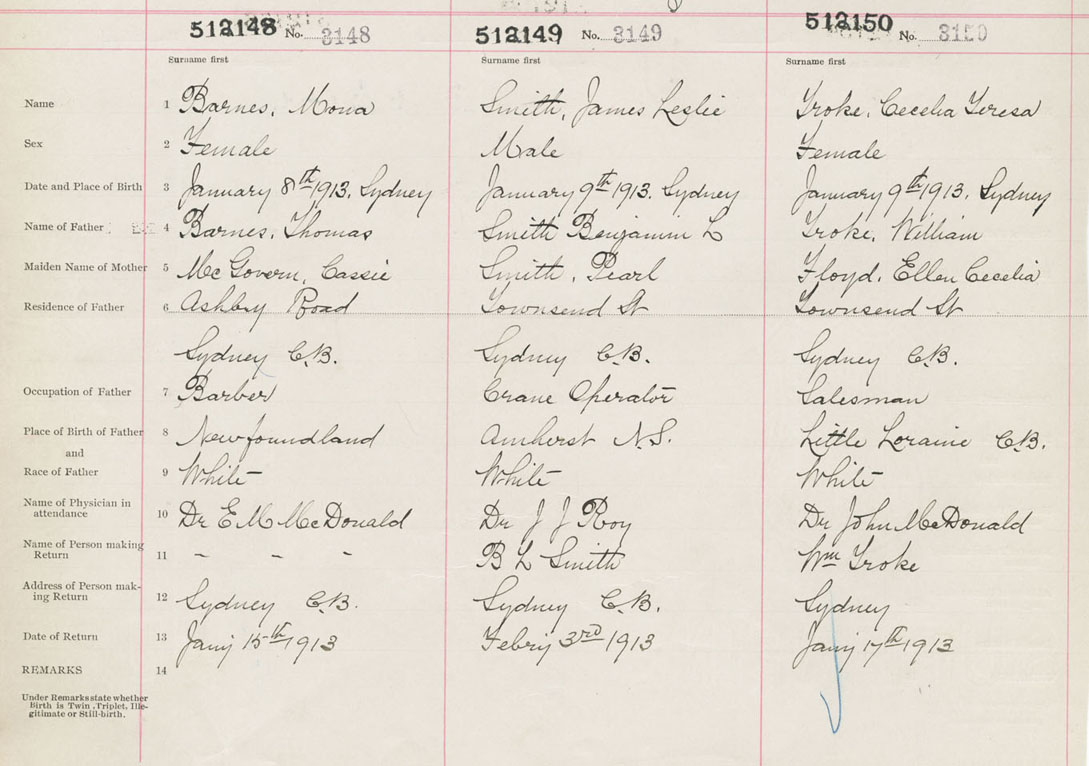 512148 No. 3148 512149 No. 3149 512150 No. 3150
Surname first Surname first Surname first
Name 1 Barnes, Mona Smith, James Leslie Troke, Cecelia Teresa
Sex 2 Female Male Female
Date and Place of Birth 3 January 8th 1913. Sydney January 9th 1913. Sydney January 9th 1913, Sydney
Name of Father 4 Barnes, Thomas Smith Benjamin L Troke, William
Maiden Name of Mother 5 McGovern, Cassie Smith, Pearl Floyd, Ellen Cecelia
Residence of Father 6 Ashby Road Townsend St Townsend St
Sydney C.B. Sydney C.B. Sydney C.B.
Occupation of Father 7 Barber Crane Operator Salesman
Place of Birth of Father 8 Newfoundland Amherst N.S. Little Loraine C.B.
and
Race of Father 9 White White White
Name of Physician in
attendance 10 Dr E M McDonald Dr J J Roy Dr John McDonald
Name of Person making
Return 11 - - - B L Smith Wm Troke
Address of Person mak-
ing Return 12 Sydney C.B. Sydney C.B. Sydney
Date of Return 13 Jany 15th 1913 Febry 3rd 1913 Jany 17th 1913
REMARKS 14
Under Remarks state whether
Birth is Twin, Triplet, Ille-
gitimate or Still-birth.